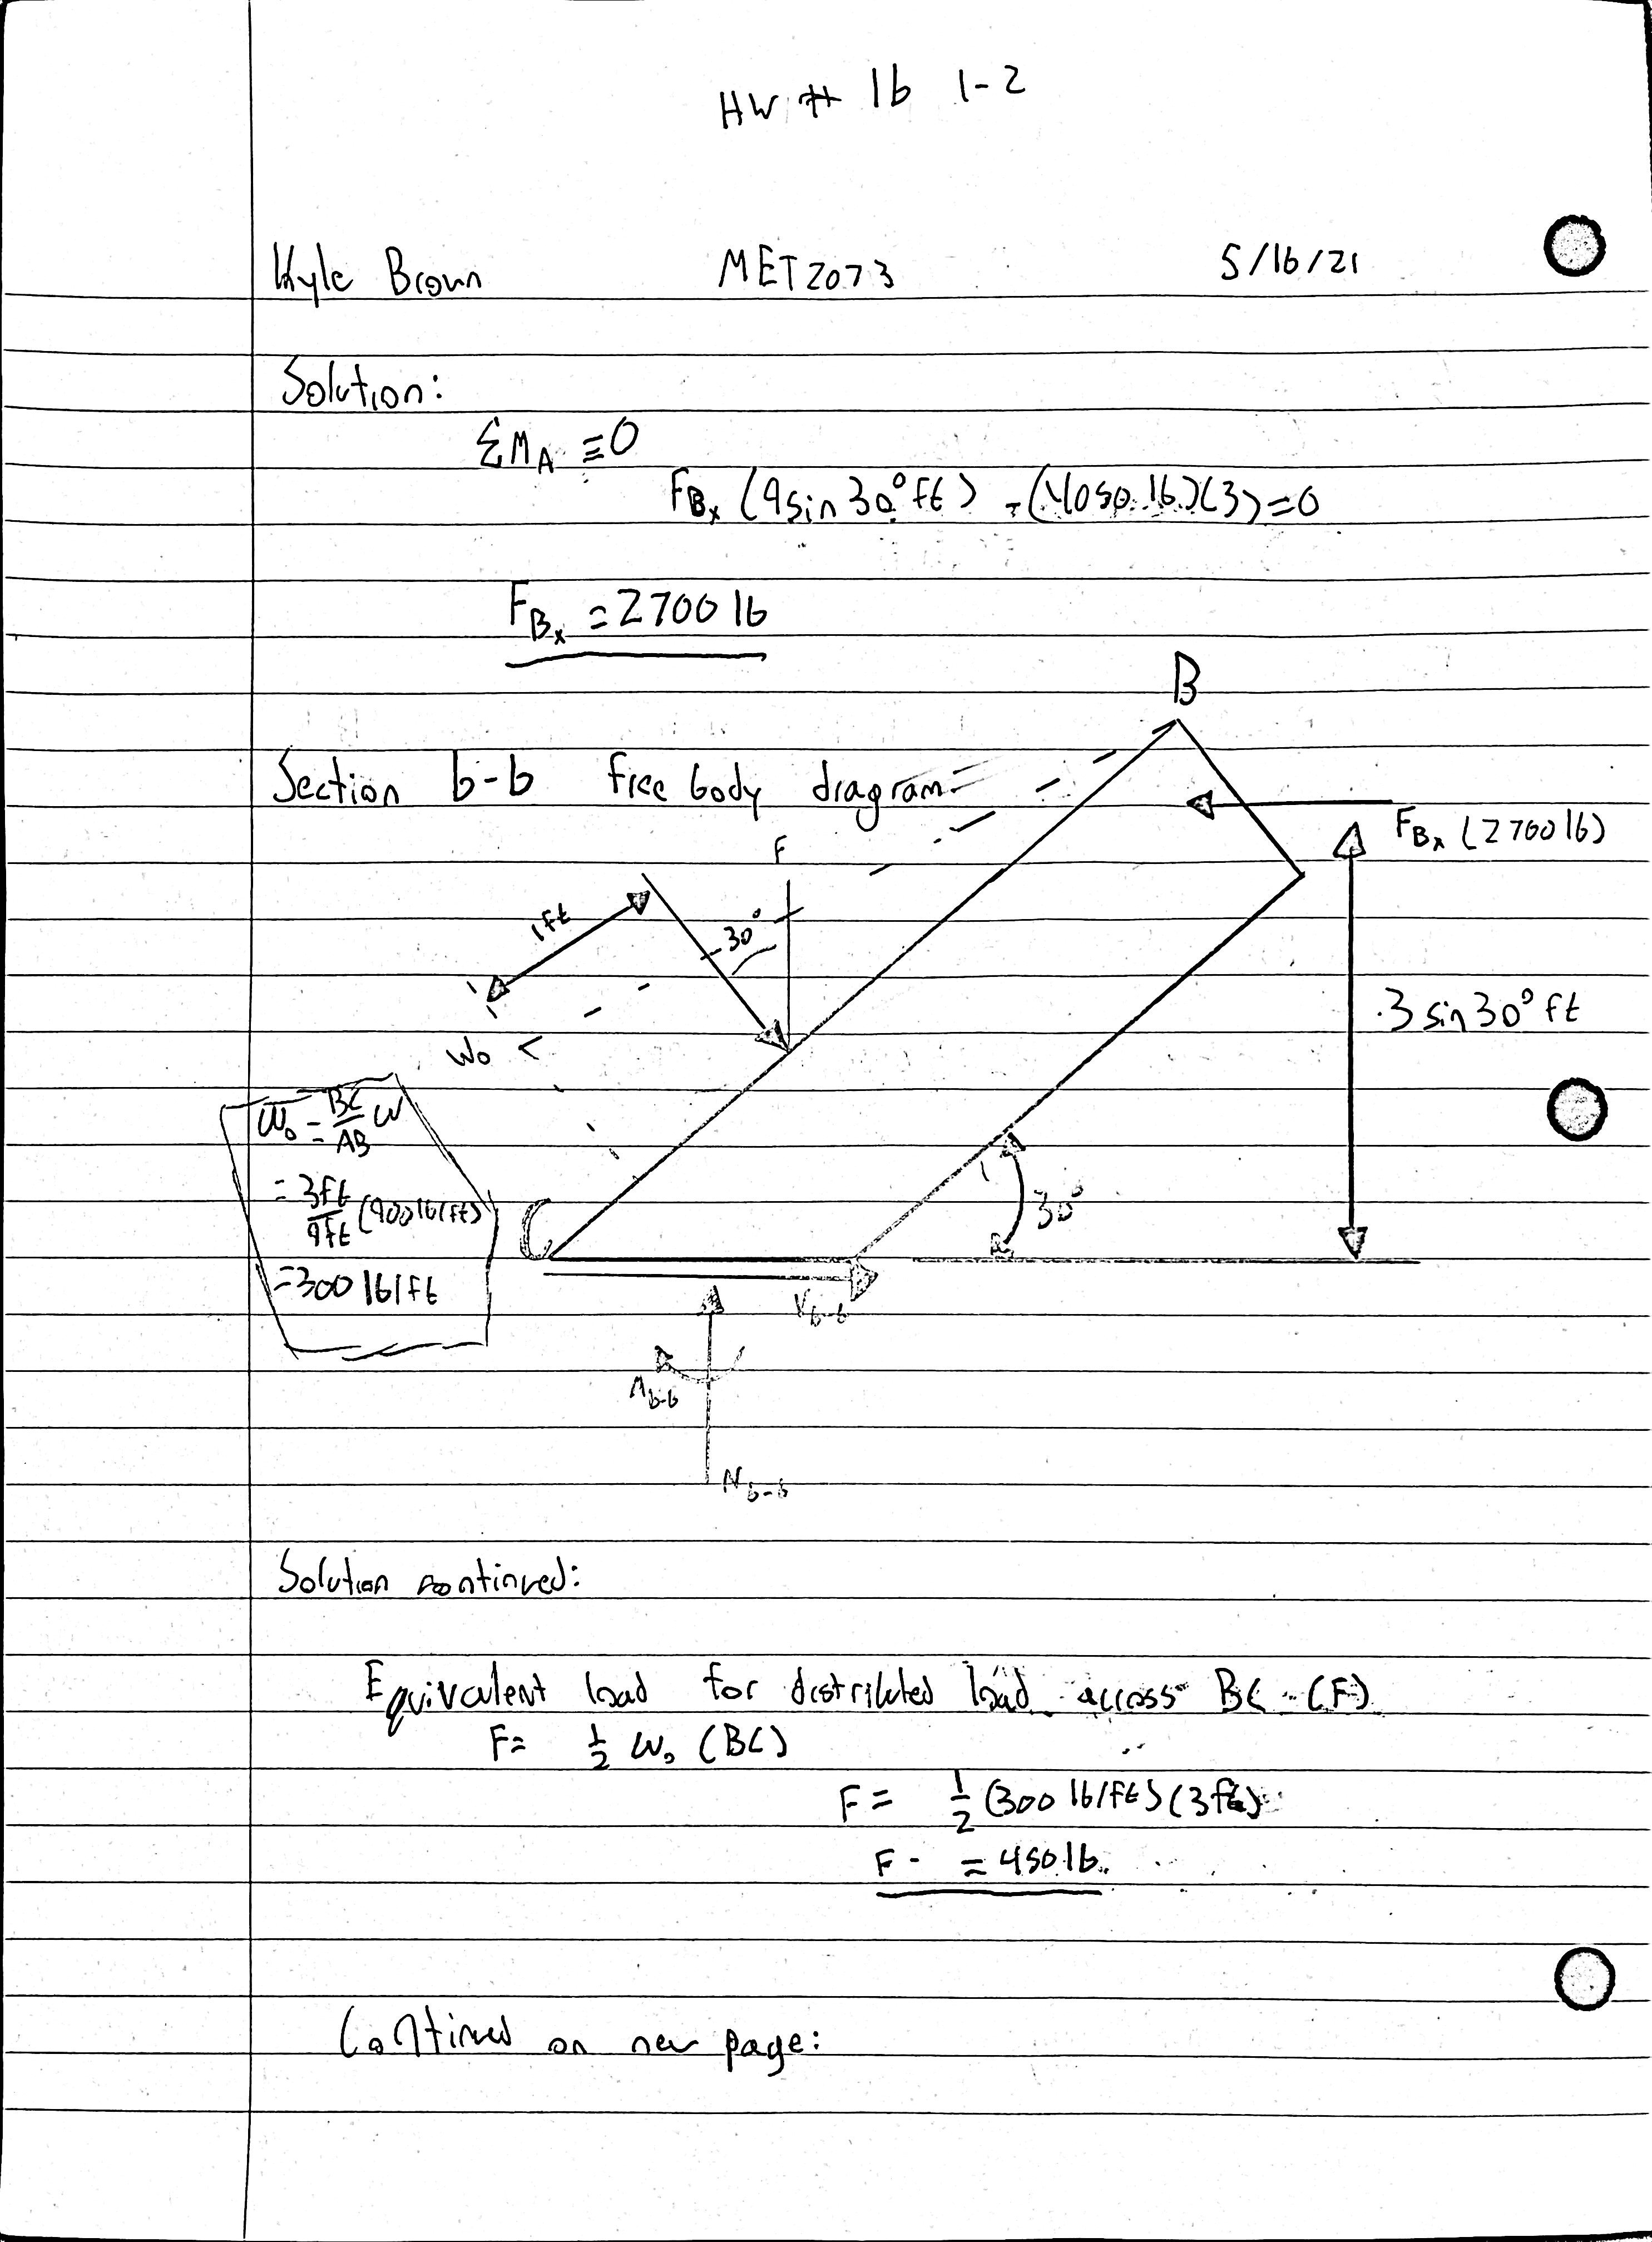 HW # 1b 1-2
Kyle Brown MET2073 5/16/21
Solution:
ΣM_A = 0
F_Bx (9sin30° ft) - (4050 lb)(3) = 0
F_Bx = 2700 lb
B
Section b-b free body diagram
F_Bx (2700 lb)
F
1ft
30°
3 sin 30° ft
W₀
W₀ = BC/AB W
= 3ft/9ft (900 lb/ft)
= 300 lb/ft
C
30°
V_b-b
M_b-b
N_b-b
Solution continued:
Equivalent load for distributed load across BC (F)
F = 1/2 W₀ (BC)
F = 1/2 (300 lb/ft)(3ft)
F = 450 lb
Continued on new page: